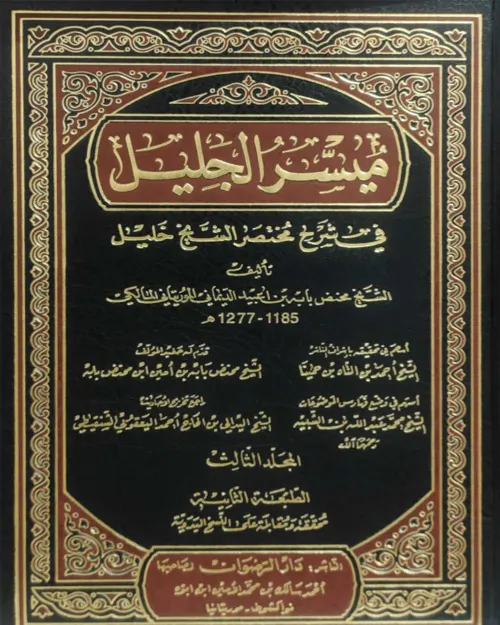 ميسر الجليل
في شرح مختصر الشيخ خليل
تأليف
الشيخ محنض بابه بن اعبيد الديماني الموريتاني المالكي
1185-1277 هـ
أسهم في تحقيقه بإشراف الناشر
قدم له حفيد المؤلف
الشيخ أحمد بن النّاه بن حمينّا
الشيخ محنض بابه بن أمين ابن محنض بابه
أسهم في وضع فهارس الموضوعات
راجع تخريج أحاديثه
الشيخ محمد عبد الله بن الشبيه
الشيخ اليدالي بن الحاج أحمد اليعقوبي الشنقيطي
رحمهما الله
المجلد الثالث
الطبعة الثانية
محققة ومقابلة على النسخ اليدوية
الناشر: دار الرضوان لصاحبها
أحمد سالك بن محمد الأمين ابن ابوه
نواكشوط - موريتانيا